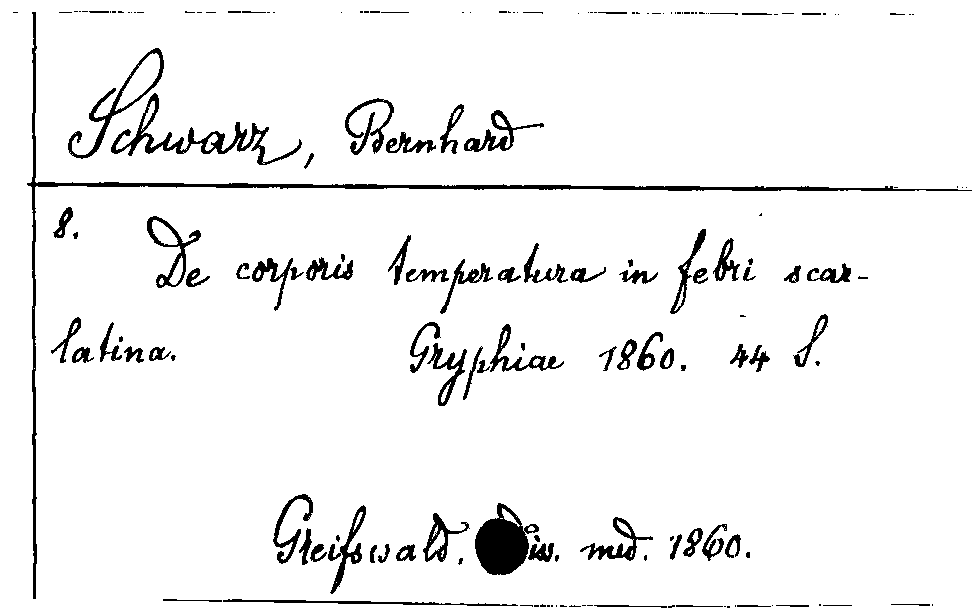 Schwarz, Bernhard
8.
De corporis temperatura in febri scar-
latina. Gryphiae 1860. 44 S.
Greifswald. Diss. med. 1860.